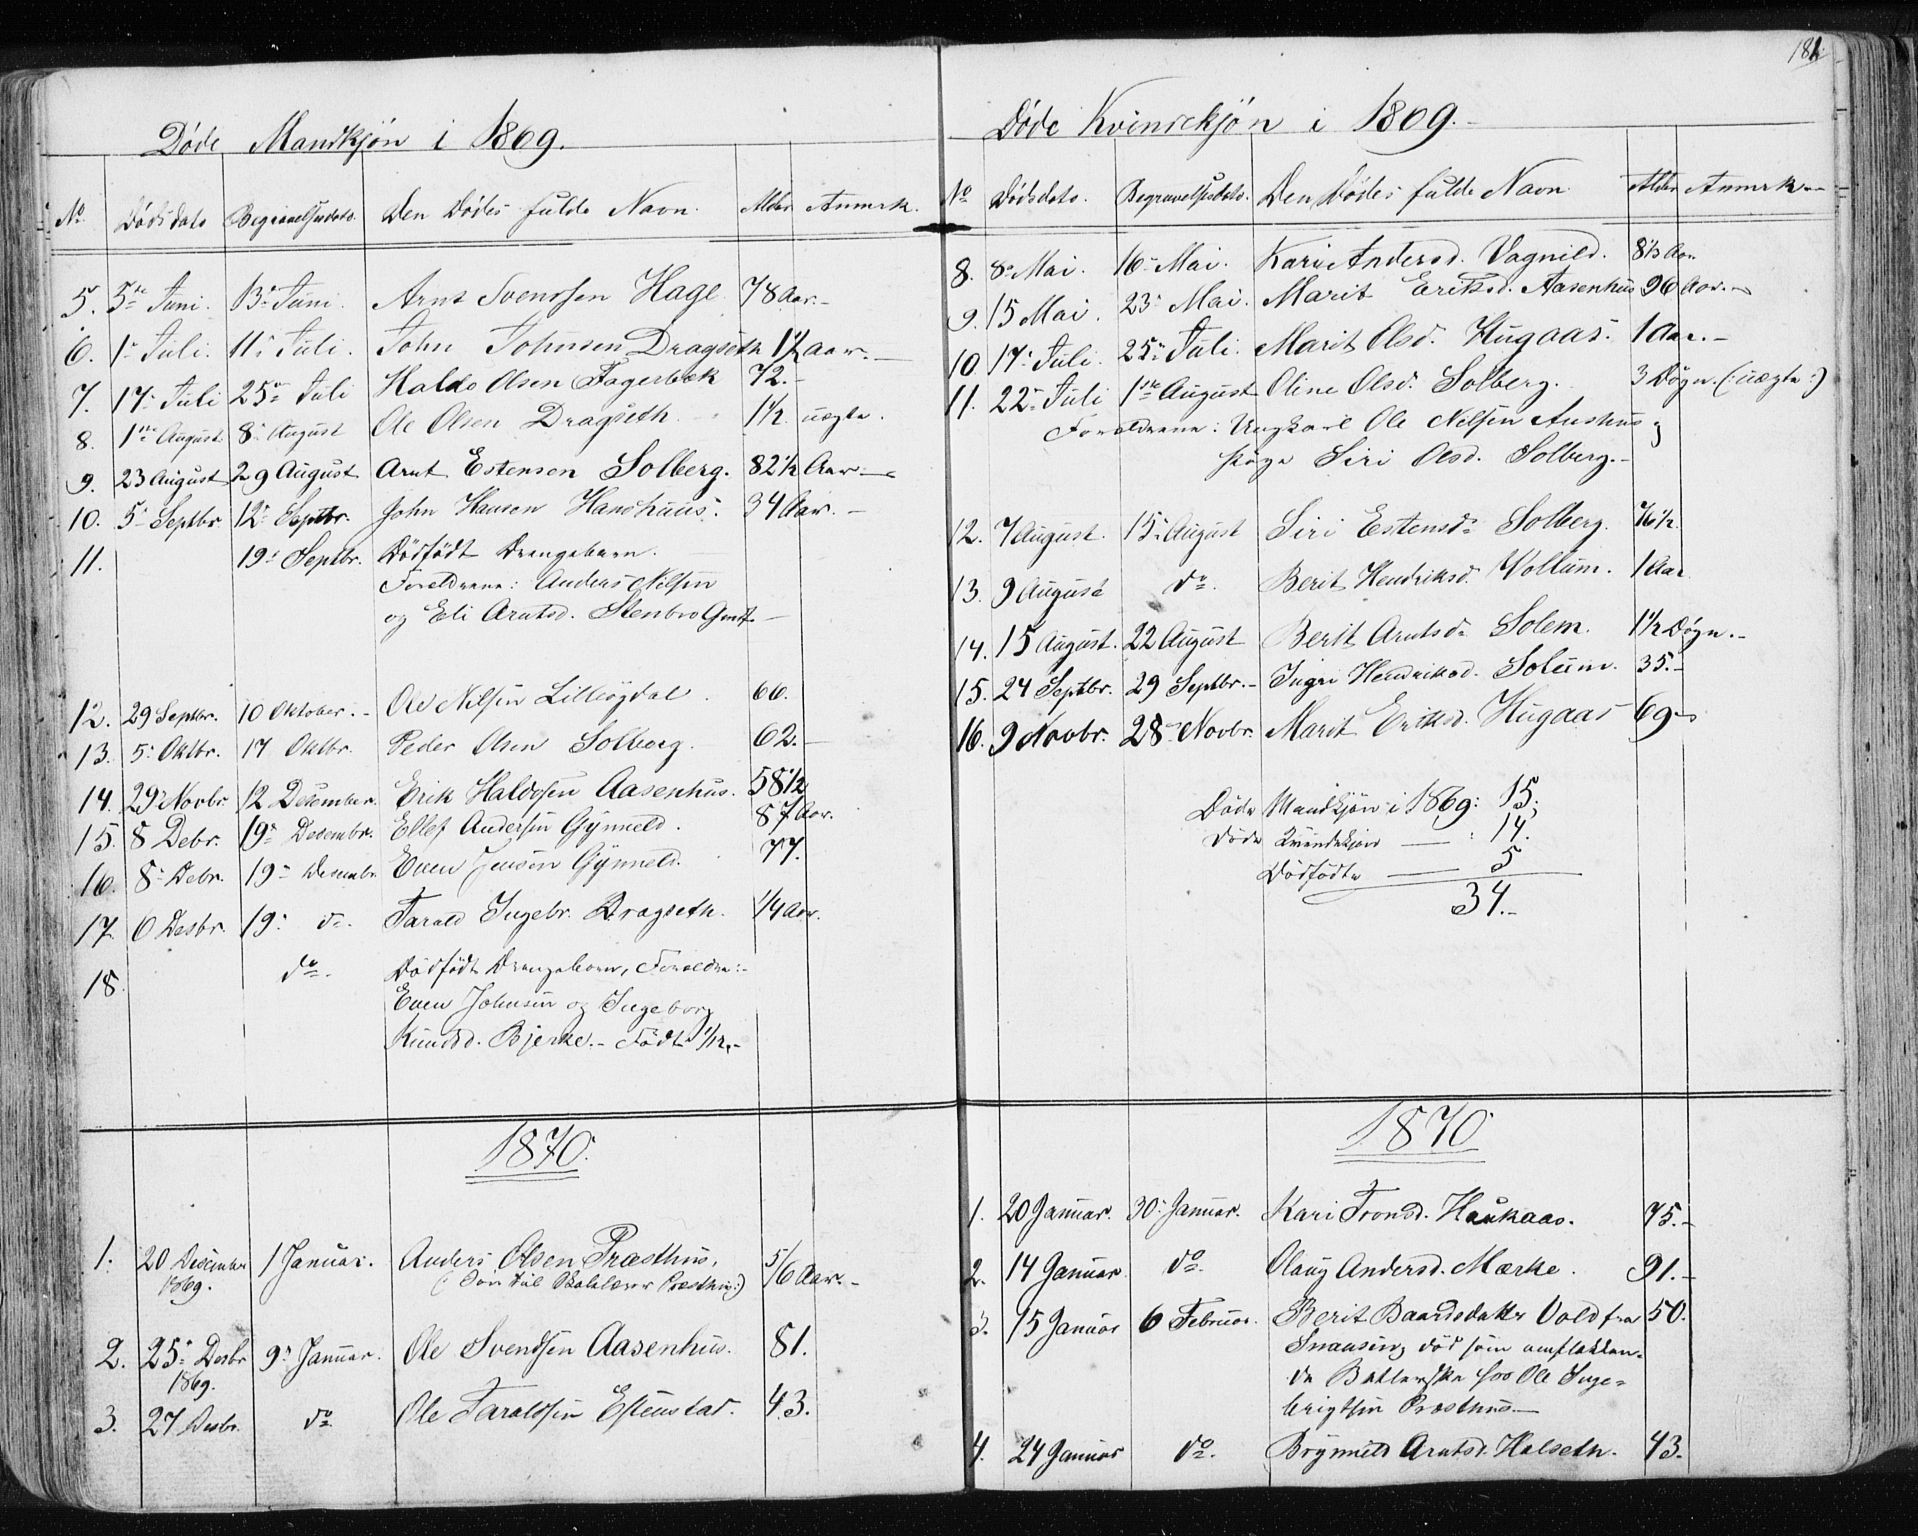 181
Døde Mandkjøn i 1869.
No. Dødsdato Begravelsesdato. Den Dødes fulde Navn. Alder Anmrk.
5. 5te Juni. 13- Juni. Arnt Svendsen Hage 78 Aar.-
6. 1- Juli. 11- Juli. John Johnsen Dragseth 1 1/2 Aar.-
7. 17- Juli 25de Juli Haldo Olsen Fagerbæk 72.-
8. 1ste August 8- August Ole Olsen Dragseth 1 1/2. uægte.
9. 23 August 29 August Arnt Estensen Solberg. 82 1/2 Aar.-
10. 5- Septbr 12- Septbr. John Hansen Hanshuus. 34 Aar.-
11. 19- Septbr. Dödfödt Drengebarn.
Forældrene: Anders Nilsen
og Eli Arntsd. Stenbro Gmst.-
12. 29 Septbr. 10 Oktober.- Ole Nilsen Lilleögdal. 66.
13. 5- Oktbr. 17 Oktbr. Peder Olsen Solberg. 62.-
14. 29- Novbr 12 Desember. Erik Haldosen Aasenhus. 58 1/2
15. 8 Debr. 19- Desembr. Ellef Andersen Gynneld. 87 Aar.
16. 8- Debr. 19- Desembr Even Jensen Gynneld. 77.
17. 6 Desbr. 19- do. Tarald Ingebr. Dragseth. 1/4 Aar.
18. do. Dödfödt Drengebarn, Forældre:-
Even Johnsen og Ingeborg
Knudsd. Bjerke.- Födt 1/12.-
1870.
1. 20 Desember 1 Januar. Anders Olsen Præsthus, 5/6 Aar.-
1869. (: Søn til Skolelærer Præsthus:)
2. 25- Desbr 9- Januar. Ole Svendsen Aasenhus. 81.
1869.
3. 27 Desbr. do Ole Taraldsen Estenstad. 43.
Døde Kvindekjön i 1869.-
No Dødsdato. Begravelsesdato. Den Dødes fulde Navn Alder Anmrk.-
8. 8- Mai. 16- Mai. Kari Andersd. Vagnild. 8 1/3 Aar
9. 15 Mai. 23- Mai. Marit Eriksd. Aasenhus 96 Aar.-
10. 17- Juli. 25- Juli. Marit Olsd. Hugaas. 1 Aar.-
11. 22- Juli 1ste August Oline Olsd. Solberg. 3 Døgn. (: uægte :)
Forældrene: Ungkarl Ole Nilsen Aushus og
Pige Siri Olsd. Solberg.-
12. 7 August. 15- August Siri Estensd. Solberg. 76 1/2.
13. 9 August do. Berit Hendriksd. Vollum. 1 Aar
14. 15 August. 22 August Berit Arntsd. Solem. 1 1/2 Døgn.-
15. 24 Septbr. 29 Septbr.- Ingri Hendriksd. Solum. 35.-
16. 9 Novbr. 28- Novbr. Marit Eriksd. Hugaas 69.-
Døde Mandkjön i 1869: 15.
Døde Kvindekjön — : 14.
Dødfödte — 5
34.-
1870
1. 20 Januar. 30- Januar. Kari Tronsd. Haukaas. 75.-
2. 14 Januar do. Olaug Andersd. Mærke. 91.-
3. 15 Januar 6 Februar. Berit Baardsdatter Vold fra 50.
Snaasen, död som omflakken-
de Betlerske hos Ole Inge-
brigtsen Præsthus.-
4. 24 Januar do. Brynnild Arntsd. Halseth. 43.